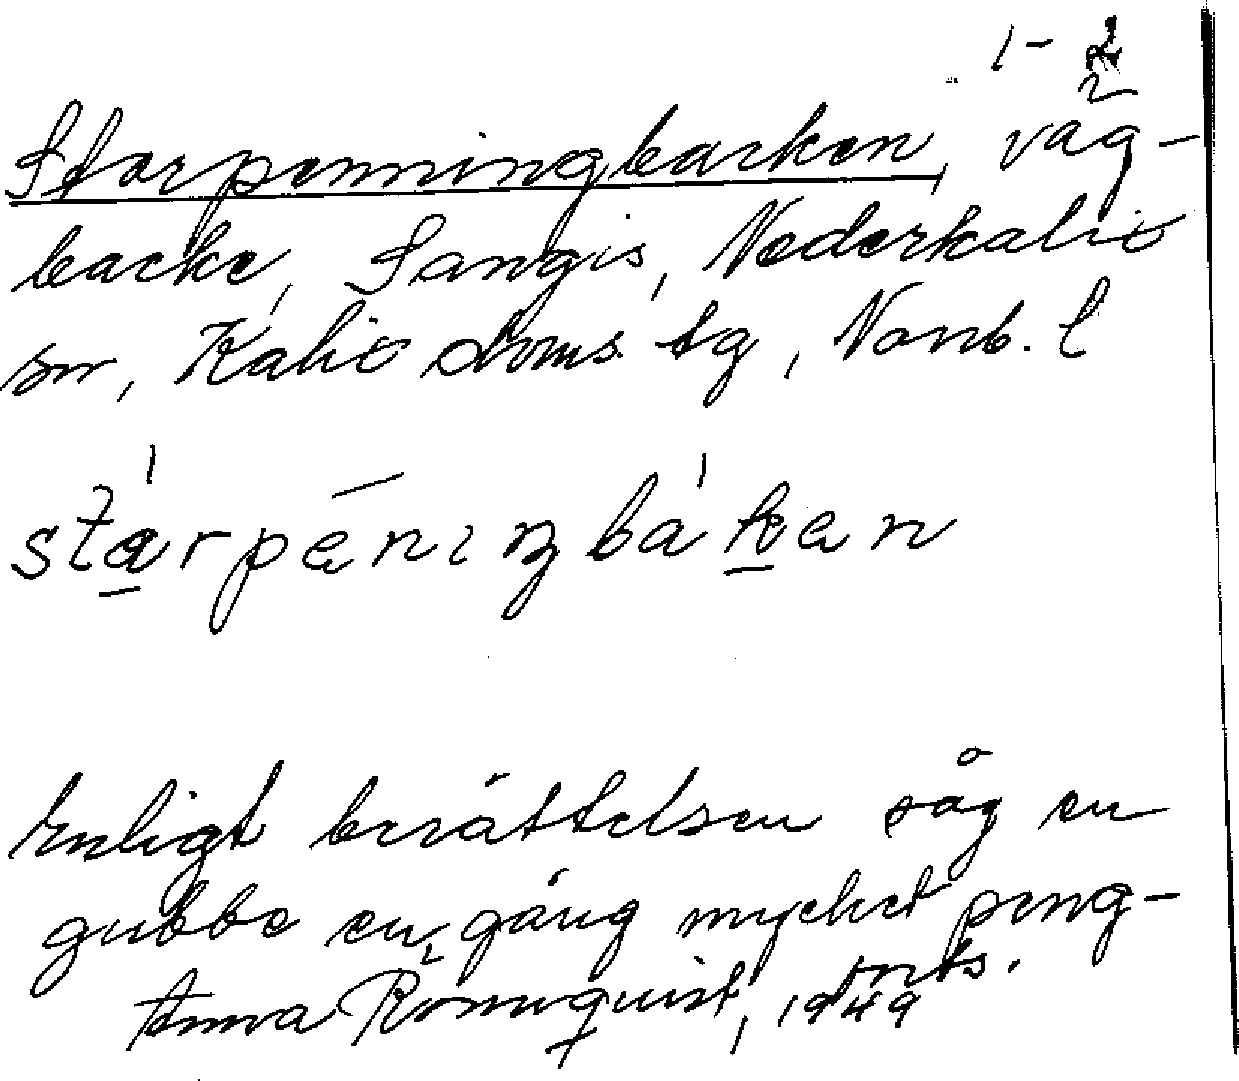 1-2
Storpenningbacken, väg-
backe, Sangis, Nederkalix
sn, Kalix doms. tg, Norrb. l
stárpéniŋbákan
Enligt berättelsen såg en
gubbe en gång mycket peng-
forts.
Anna Rönnquist, 1949